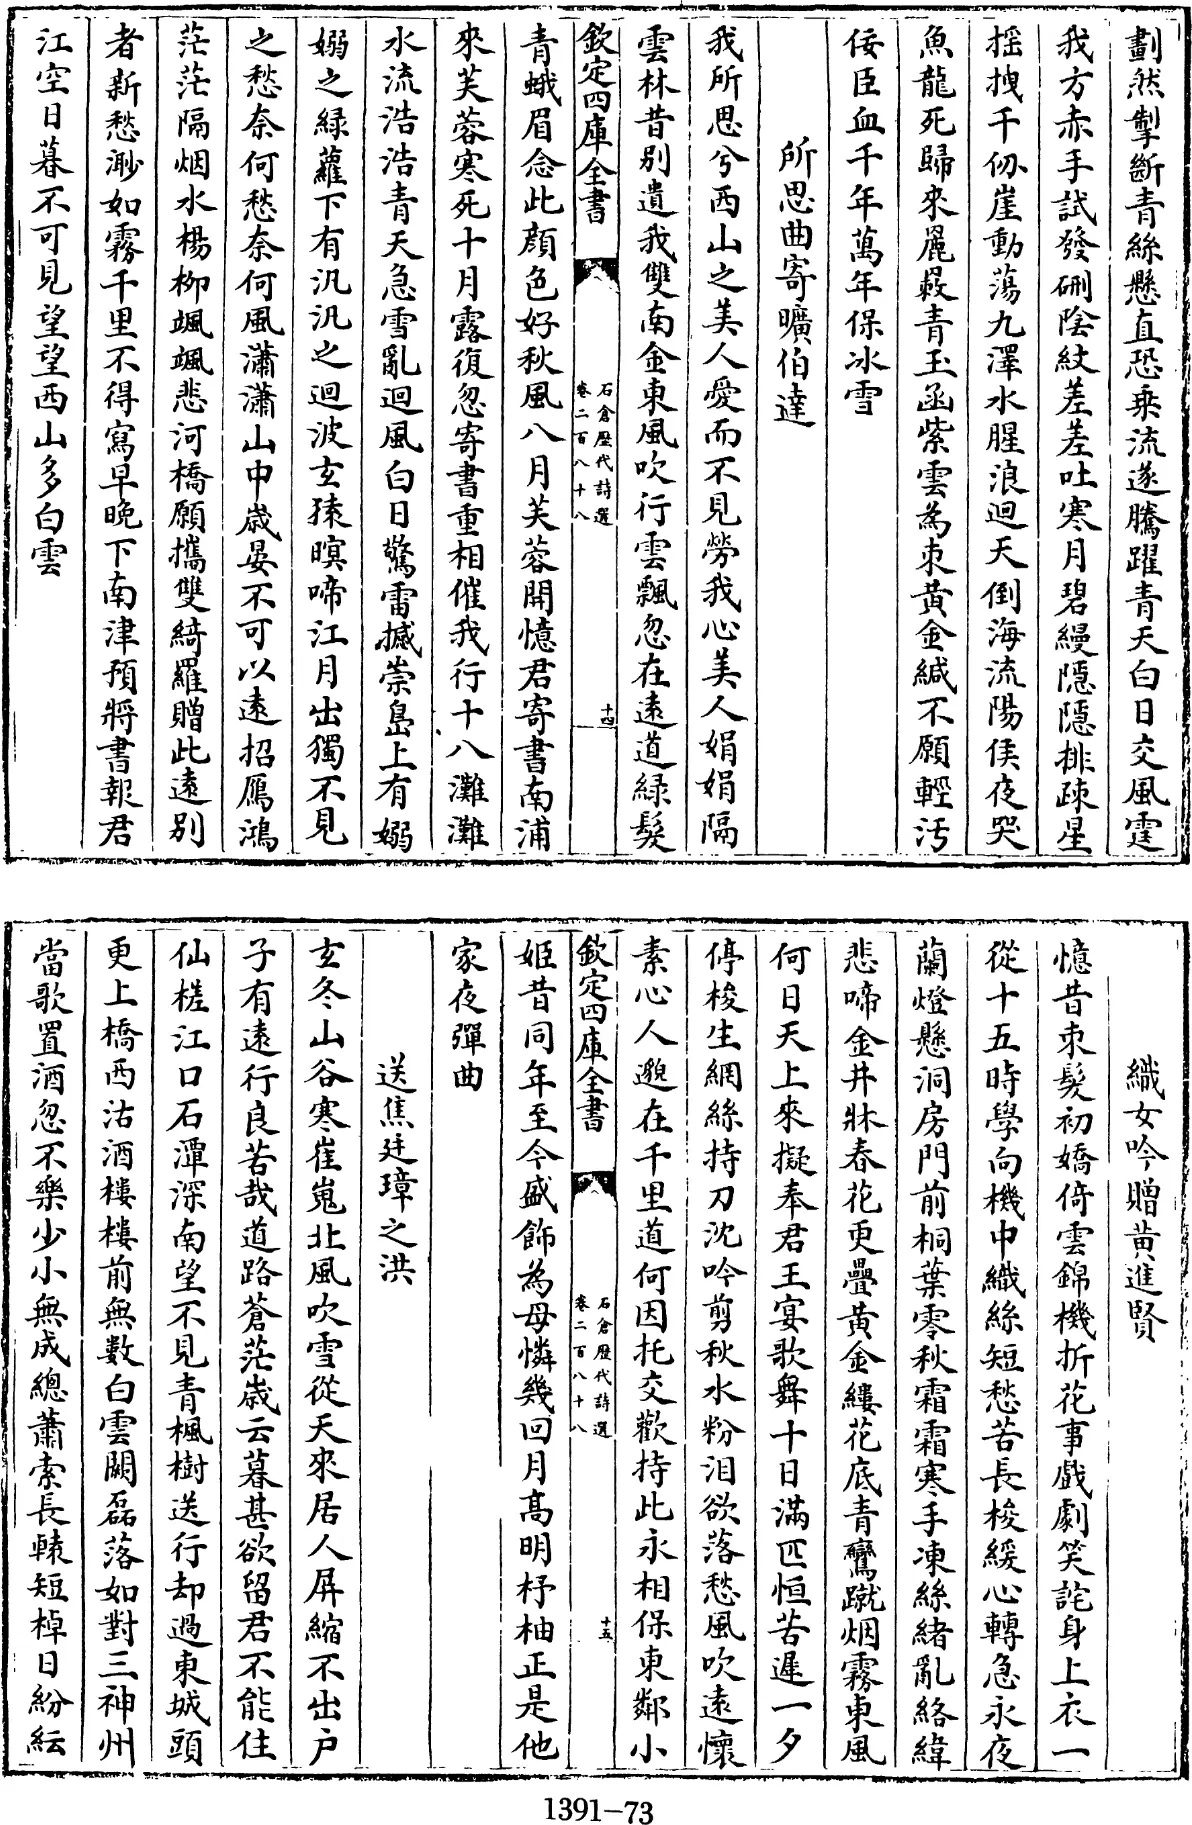 劃然掣斷青絲懸直恐乗流遂騰躍青天白日交風霆
我方赤手試發硎陰紋差差吐寒月碧縵隱隱排疎星
揺拽千仭崖動蕩九澤水腥浪迴天倒海流陽侯夜哭
魚龍死歸來麗㪘青玉函紫雲為朿黄金緘不願輕汚
佞臣血千年萬年保冰雪
所思曲寄曠伯達
我所思兮西山之美人愛而不見勞我心美人娟娟隔
雲林昔别遺我雙南金東風吹行雲飄忽在逺道緑髪
欽定四庫全書
石倉歴代詩選
卷二百八十八
十四
青蛾眉念此顔色好秋風八月芙蓉開憶君寄書南浦
來芙蓉寒死十月露復忽寄書重相催我行十八灘灘
水流浩浩青天急雪亂迴風白日驚雷撼崇島上有嫋
嫋之緑蘿下有汎汎之迴波玄猿暝啼江月出獨不見
之愁奈何愁奈何風瀟瀟山中歳晏不可以逺招鴈鴻
茫茫隔烟水楊柳颯颯悲河橋願攜雙綺羅贈此逺别
者新愁渺如霧千里不得寫早晩下南津預將書報君
江空日暮不可見望望西山多白雲
織女吟贈黄進賢
憶昔朿髪初嬌倚雲錦機折花事戲劇笑詫身上衣一
從十五時學向機中織絲短愁苦長梭緩心轉急永夜
蘭燈懸洞房門前桐葉零秋霜霜寒手凍絲緒亂絡緯
悲啼金井牀春花更疊黄金縷花底青鸞蹴烟霧東風
何日天上來擬奉君王宴歌舞十日滿匹恒苦遲一夕
停梭生網絲持刀沈吟剪秋水粉泪欲落愁風吹逺懷
素心人邈在千里道何因托交歡持此永相保東鄰小
欽定四庫全書
石倉歴代詩選
卷二百八十八
十五
姬昔同年至今盛飾為母憐幾回月髙明杼柚正是他
家夜彈曲
送焦廷璋之洪
玄冬山谷寒崔嵬北風吹雪從天來居人屏縮不出户
子有逺行良苦哉道路蒼茫歳云暮甚欲留君不能住
仙槎江口石潭深南望不見青楓樹送行却過東城頭
更上橋西沽酒樓樓前無數白雲闕磊落如對三神州
當歌置酒忽不樂少小無成總蕭索長轅短棹日紛紜
1391-73